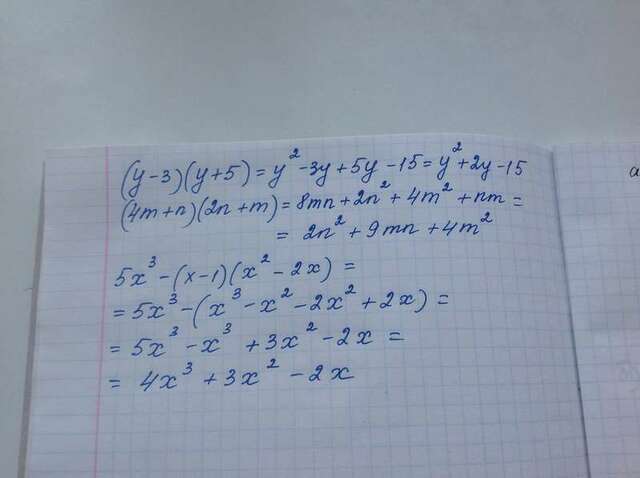 (y-3)(y+5) = y² -3y+5y -15 = y²+2y-15
(4m+n)(2n+m) = 8mn+2n²+4m²+nm =
= 2n²+9mn+4m²
5x³-(x-1)(x²-2x) =
= 5x³-(x³-x²-2x²+2x) =
= 5x³-x³+3x²-2x =
= 4x³+3x²-2x